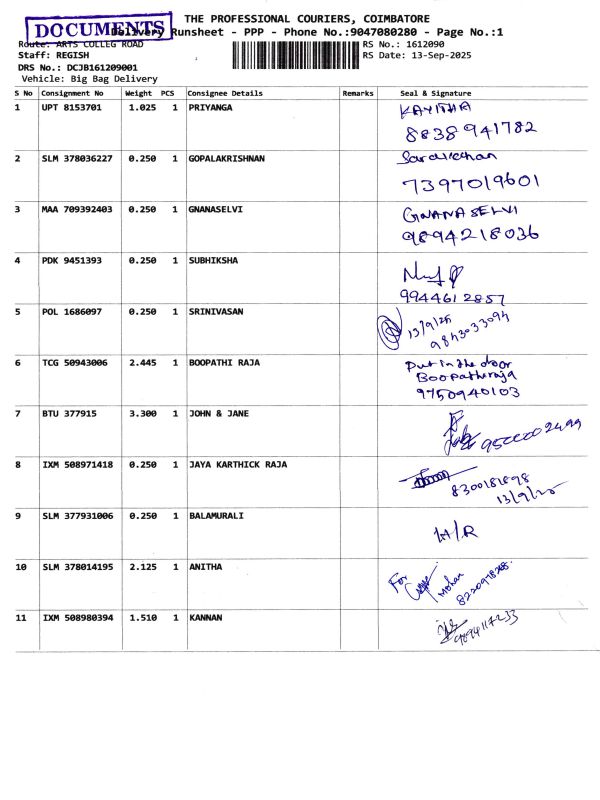 THE PROFESSIONAL COURIERS, COIMBATORE
DOCUMENTS
Delivery Runsheet - PPP - Phone No.:9047080280 - Page No.:1
Route: ARTS COLLEG ROAD
RS No.: 1612090
Staff: REGISH
RS Date: 13-Sep-2025
DRS No.: DCJB161209001
Vehicle: Big Bag Delivery
S No Consignment No Weight PCS Consignee Details Remarks Seal & Signature
1 UPT 8153701 1.025 1 PRIYANGA KAVITHA
8838941782
2 SLM 378036227 0.250 1 GOPALAKRISHNAN
7397019601
3 MAA 709392403 0.250 1 GNANASELVI GNANASELVI
9894218036
4 PDK 9451393 0.250 1 SUBHIKSHA
9944612857
5 POL 1686097 0.250 1 SRINIVASAN
13/9/25
9843033094
6 TCG 50943006 2.445 1 BOOPATHI RAJA Put in the door
Boopathiraja
9750940103
7 BTU 377915 3.300 1 JOHN & JANE
8 IXM 508971418 0.250 1 JAYA KARTHICK RAJA
13/9/25
9 SLM 377931006 0.250 1 BALAMURALI H/R
10 SLM 378014195 2.125 1 ANITHA For
Mohan
11 IXM 508980394 1.510 1 KANNAN